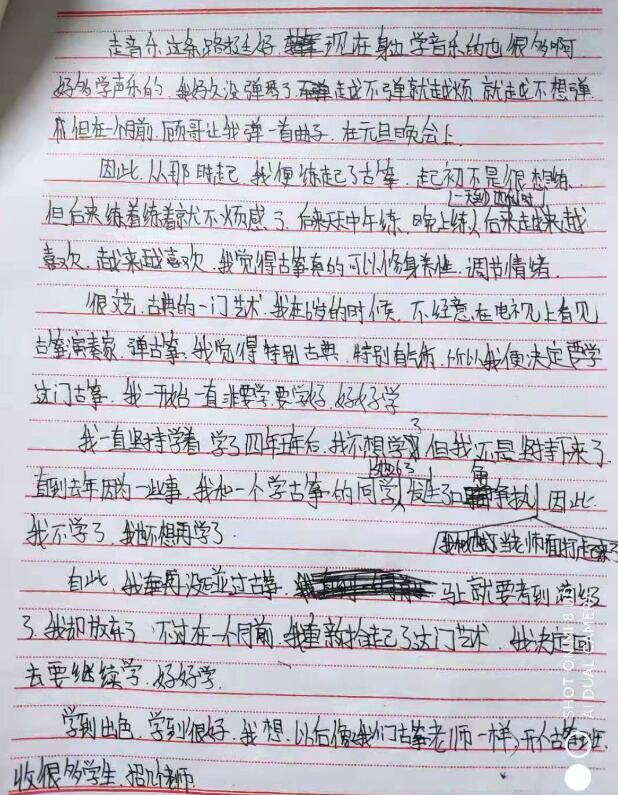 走音乐这条路挺好.现在身边学音乐的也很多啊
好多学声乐的.我好久没弹琴了越不弹就越烦.就越不想弹
但在一个月前.顾哥让我弹一首曲子.在元旦晚会上.
因此.从那时起.我便练起了古筝.起初不是很想练.
但后来练着练着就不烦感了.后来天天中午练.晚上练.后来越来越
喜欢.越来越喜欢.我觉得古筝真的可以修身养性.调节情绪.
很文艺.古典的一门艺术.我在岁的时候.不经意在电视上看见
古筝演奏家.弹古筝.我觉得特别古典.特别有气质.所以我便决定要学
这门古筝.我一开始一直非要学.要学好.好好学
我一直坚持学着.学了四年五年后.我不想学了但我还是坚持下来了.
直到去年因为一些事.我和一个学古筝的同学发生了口角争执因此.
我不学了.我也不想再学了.
当老师面打起来了
自此.我再没碰过古筝.马上就要考到级
了.我却放弃了.不过在一个月前.我重新拾起了这门艺术.我决定回
去要继续学.好好学.
学到出色.学到很好.我想.以后像我们古筝老师一样.开个古筝班.
收很多学生.招几个老师.
SHOT ON MI 8 UD
AI DUAL CAMERA